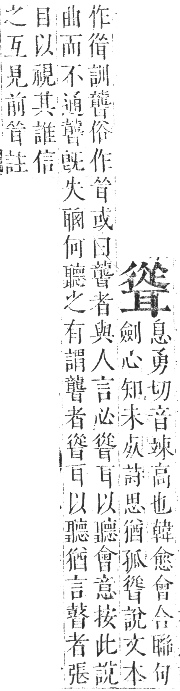 聳
息勇切音竦高也韓愈會合聯句
劍心知未死詩思猶孤聳說文本
作訓聾俗作或曰聾者與人言必聳耳以聽會意按此說
曲而不通聾旣失聰何聽之有謂聾者聳耳以聽猶言瞽者張
目以視其誰信
之互見前註